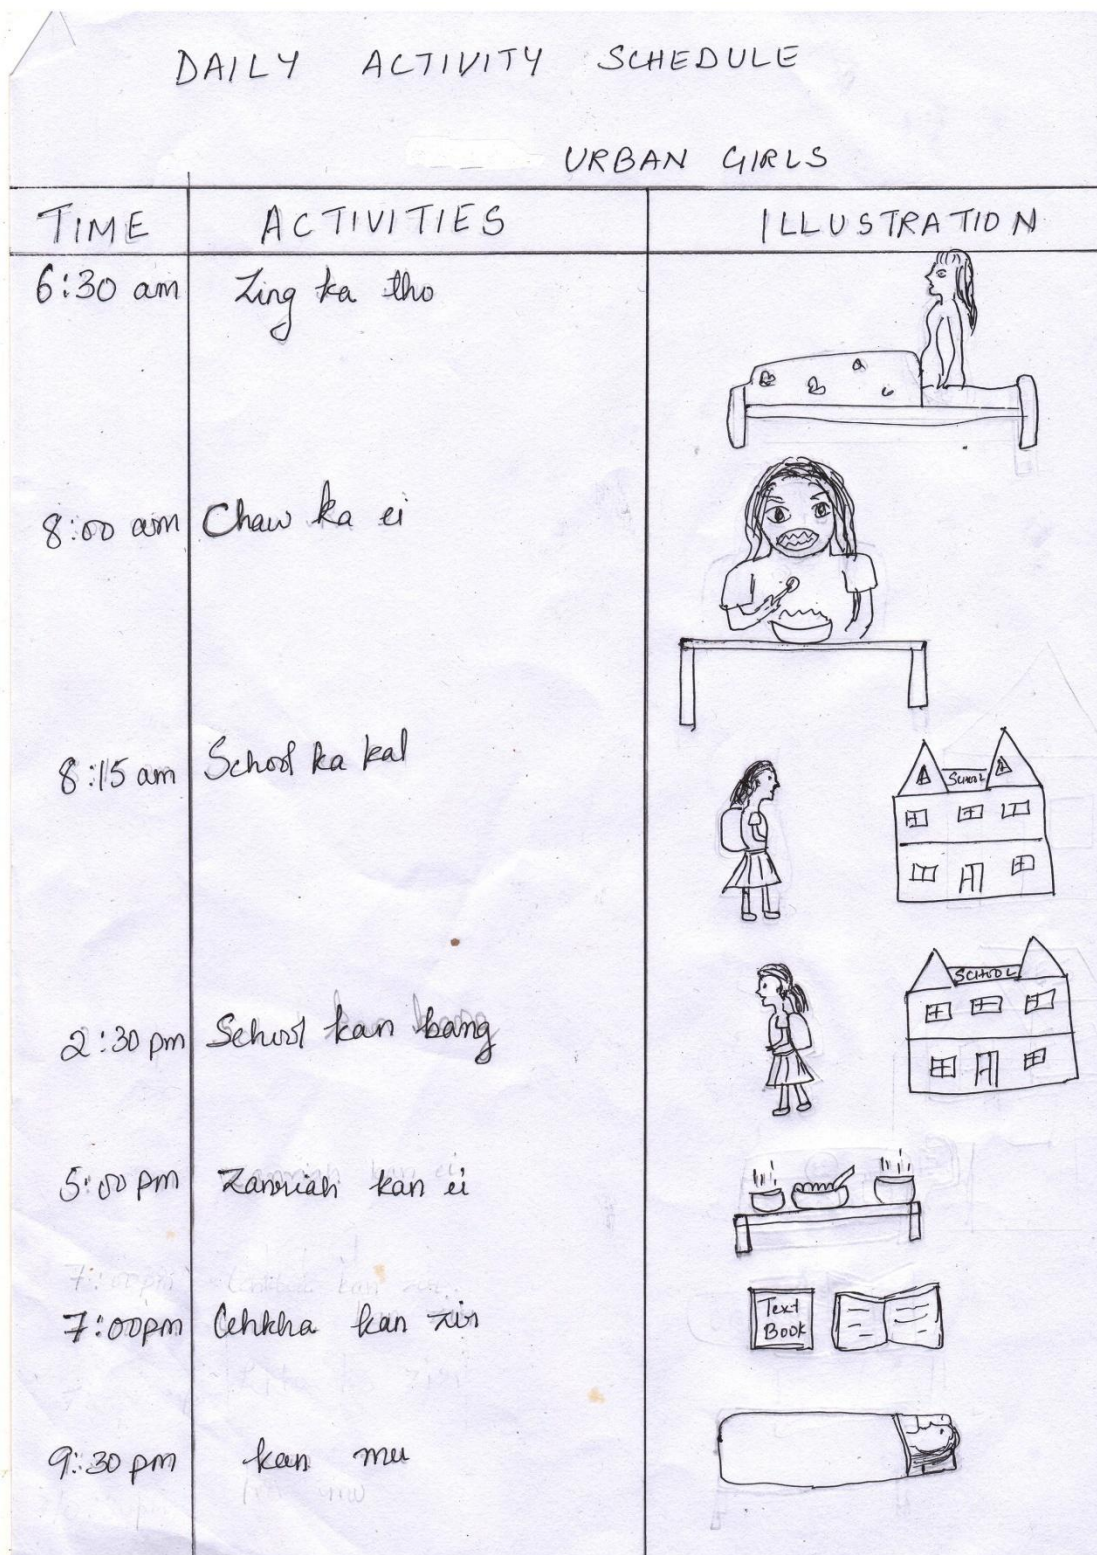 DAILY ACTIVITY SCHEDULE
URBAN GIRLS
TIME ACTIVITIES ILLUSTRATION
6:30 am Zing ka tho
8:00 am Chaw ka ei
8:15 am School ka kal
SCHOOL
2:30 pm School kan bang
SCHOOL
5:00 pm Zanriah kan ei
7:00pm kan zir
Text
Book
9:30 pm kan mu